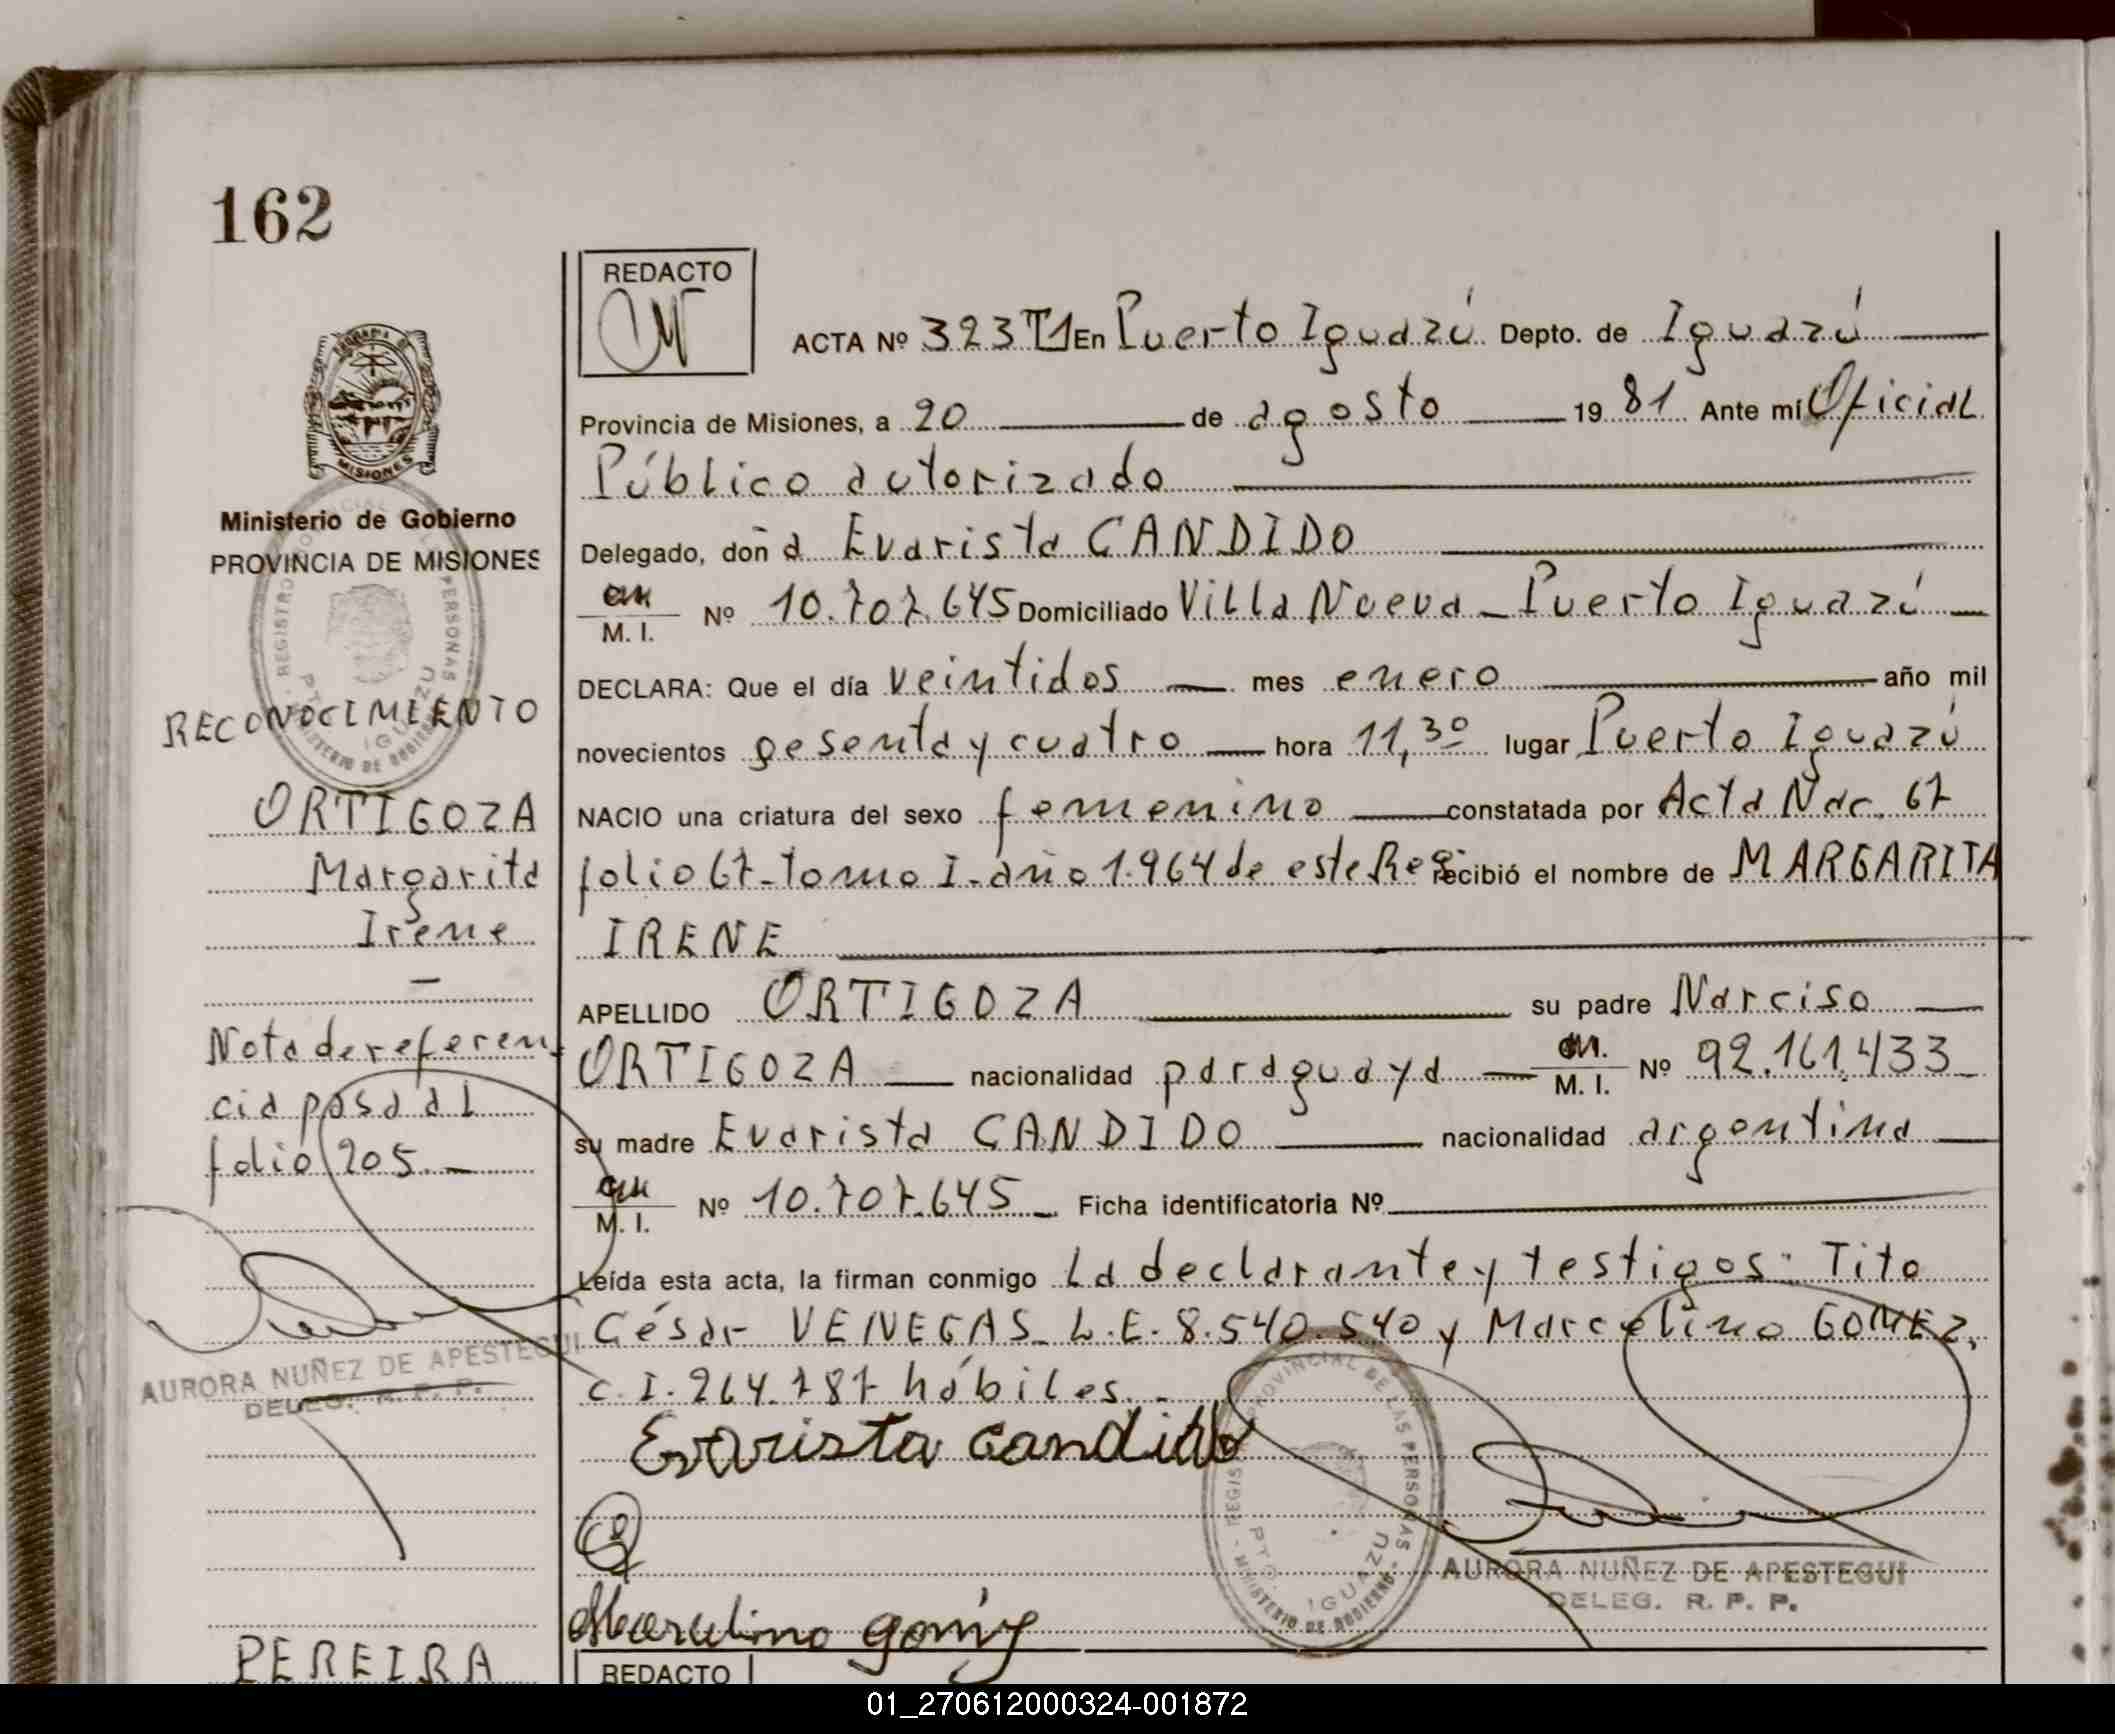 162
REDACTO
ACTA Nº 323 T1 En Puerto Iguazú Depto. de Iguazú
Provincia de Misiones, a 20 de agosto 19 81 Ante mí Oficial
Público autorizado
Delegado, doña Evarista CANDIDO
M. I. Nº 10.707.645 Domiciliado Villa Nueva - Puerto Iguazú
DECLARA: Que el día veintidos mes enero año mil
novecientos sesenta y cuatro hora 11,30 lugar Puerto Iguazú
NACIO una criatura del sexo femenino constatada por Acta Nac. 67
folio 67 - tomo I - año 1.964 de este Reg. recibió el nombre de MARGARITA
IRENE
APELLIDO ORTIGOZA su padre Narciso
ORTIGOZA nacionalidad paraguaya M. I. Nº 92.161.433
su madre Evarista CANDIDO nacionalidad argentina
M. I. Nº 10.707.645 Ficha identificatoria Nº
Leída esta acta, la firman conmigo La declarante y testigos: Tito
César VENEGAS L.E. 8.540.540 y Marcelino GOMEZ,
C.I. 264.787 hábiles.-
Evarista Candido
Marcelino gomez
REGISTRO PROVINCIAL DE LAS PERSONAS
PTO. IGUAZU
MINISTERIO DE GOBIERNO
AURORA NUÑEZ DE APESTEGUI
DELEG. R. P. P.
REDACTO
MISIONES
Ministerio de Gobierno
PROVINCIA DE MISIONES
REGISTRO PERSONAS
PTO. IGUAZU
MINISTERIO DE GOBIERNO
RECONOCIMIENTO
ORTIGOZA
Margarita
Irene
-
Nota de referen
cia pasa al
folio 205.-
AURORA NUÑEZ DE APESTEGUI
DELEG. R. P. P.
PEREIRA
01_270612000324-001872